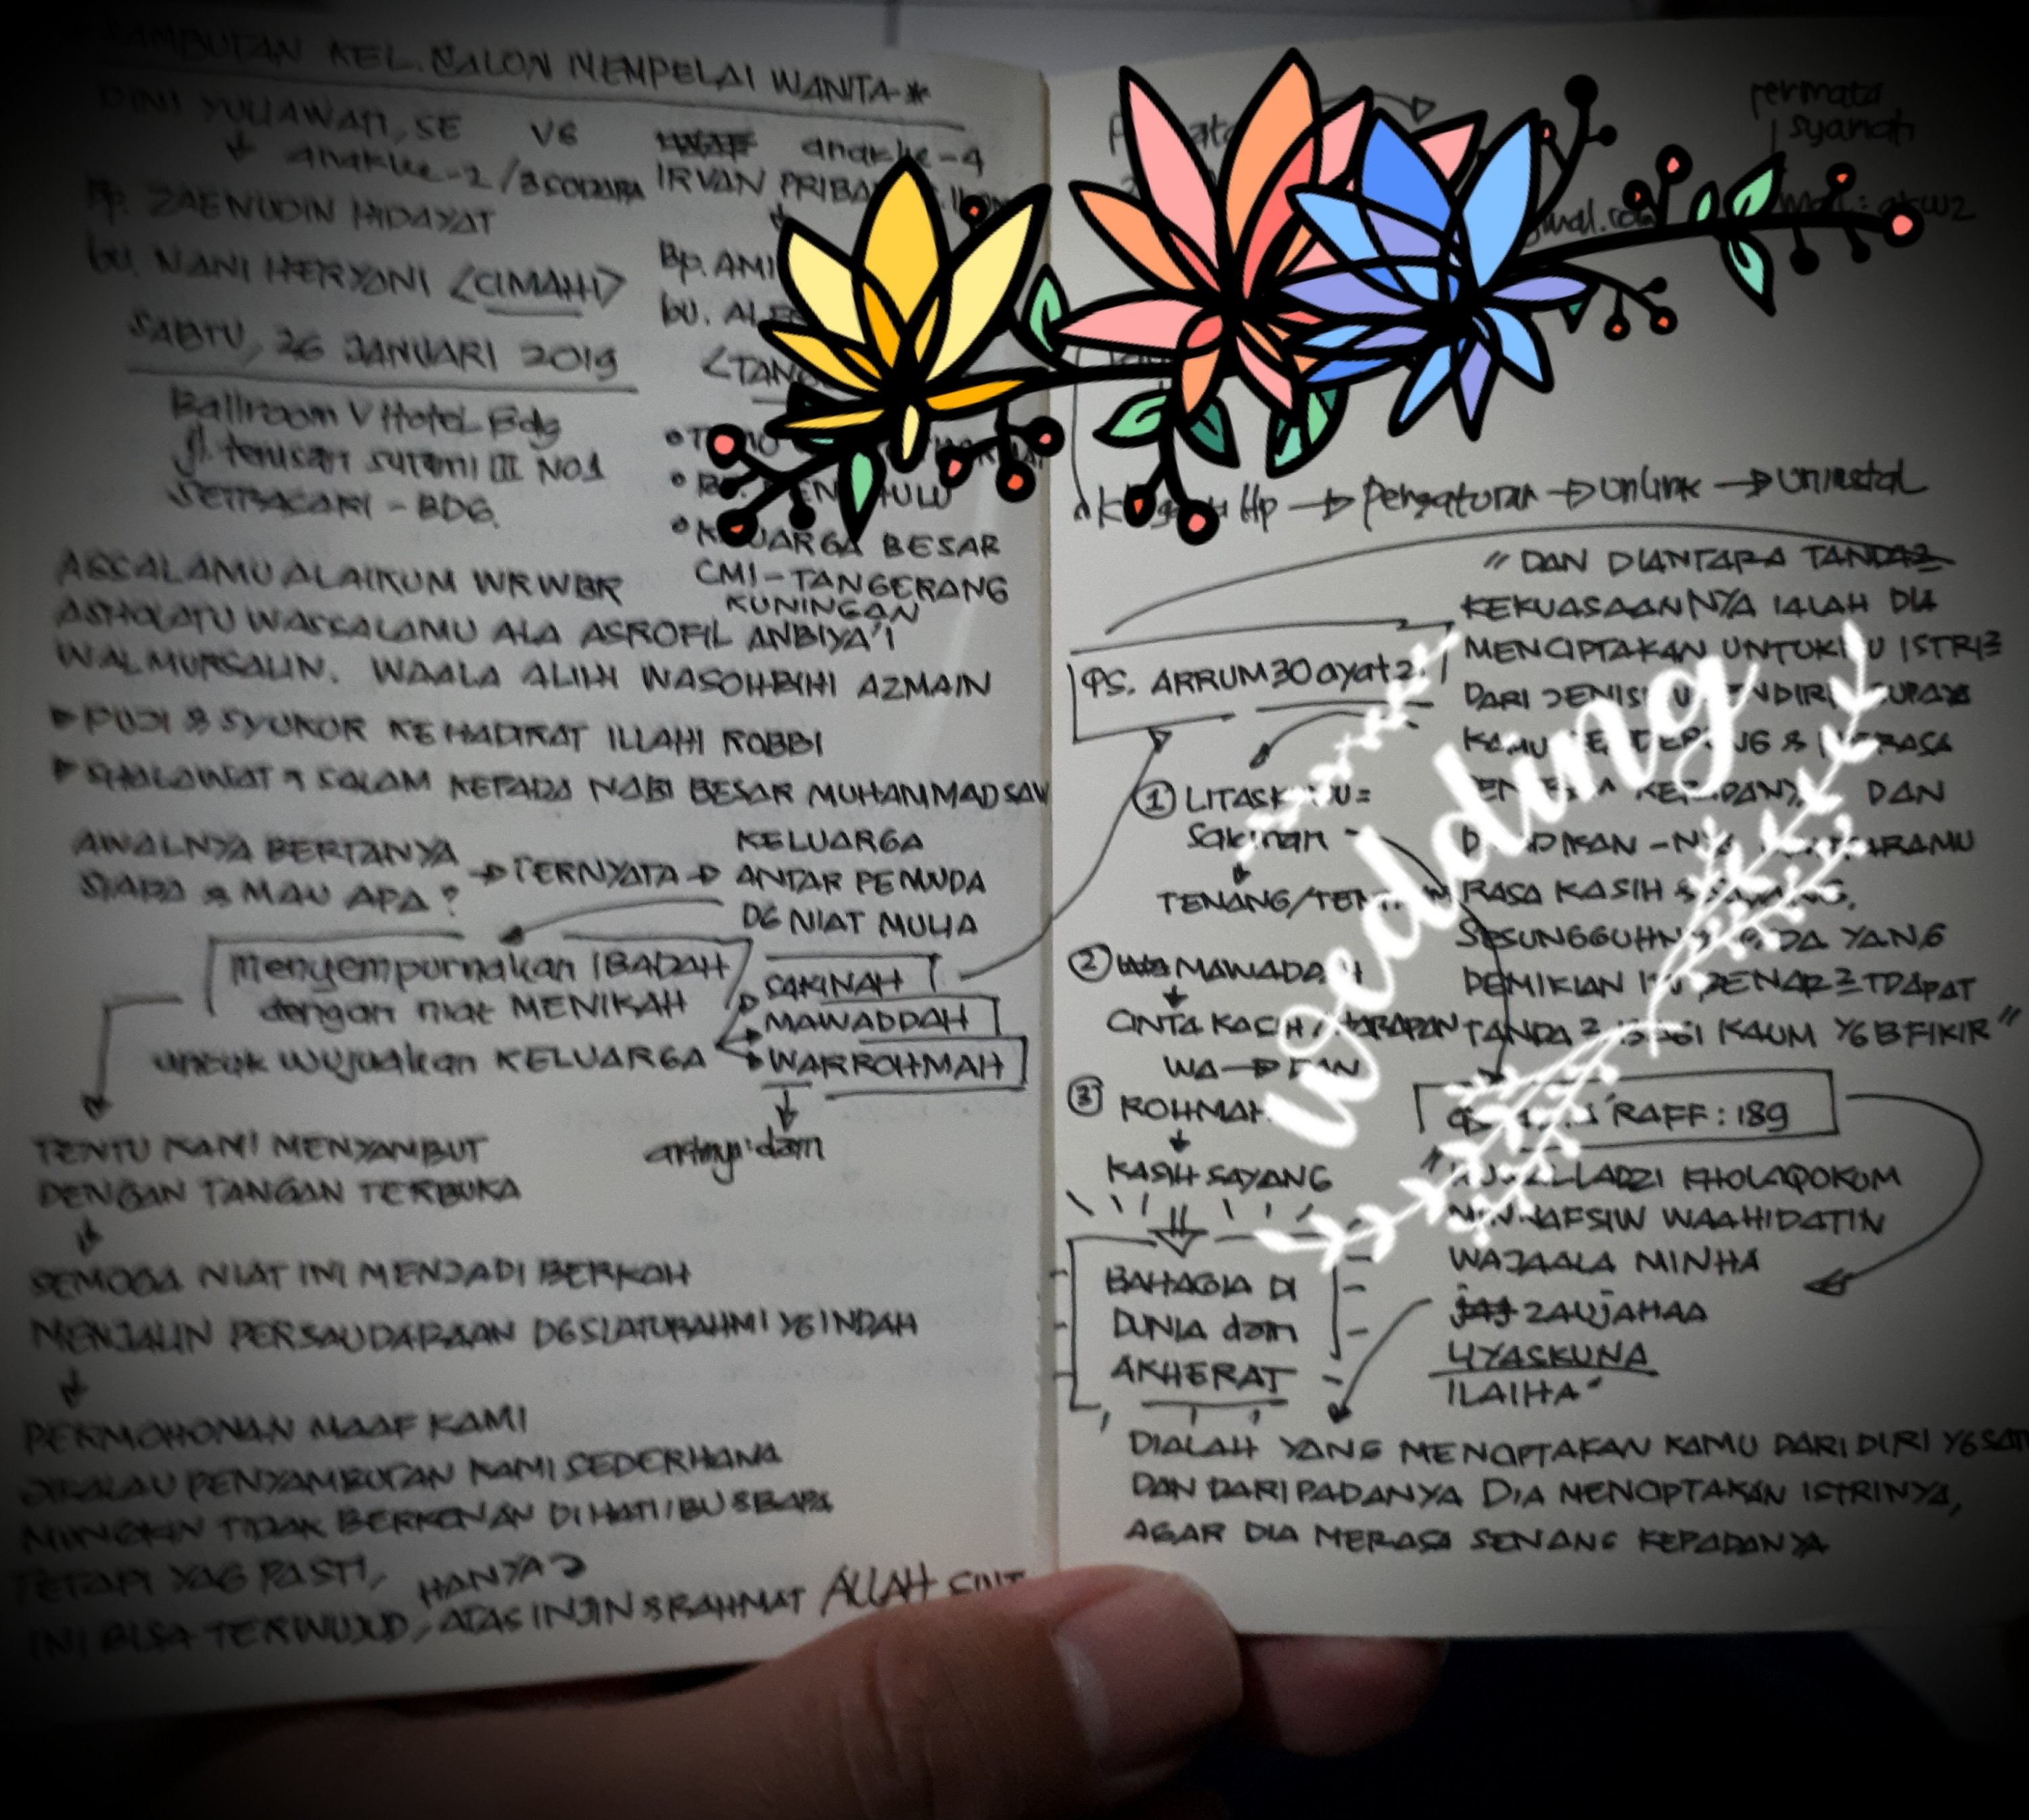 KEL. CALON MEMPELAI WANITA *
DINI YULIAWATI, SE VS anak ke-4
anak ke-2 / 3 SODARA IRVAN
Bp. ZAENUDIN HIDAYAT
bu. NANI HERYANI <CIMAHI> Bp. AMI
bu.
SABTU, 26 JANUARI 2019
Ballroom V Hotel Bdg
jl. terusan sutami III NO1
SETRASARI - BDG.
• KELUARGA BESAR
CMI-TANGERANG
KUNINGAN
ASSALAMU ALAIKUM WRWBR
ASHOLATU WASSALAMU ALA ASROFIL ANBIYA'I
WALMURSALIN. WAALA ALIHI WASOHBIHI AZMAIN
▶ PUJI & SYUKUR KEHADIRAT ILLAHI ROBBI
▶ SHALAWAT & SALAM KEPADA NABI BESAR MUHAMMAD SAW
AWALNYA BERTANYA
SIAPA & MAU APA? → TERNYATA →
KELUARGA
ANTAR PEMUDA
DG NIAT MULIA
Menyempurnakan IBADAH
dengan niat MENIKAH
untuk wujudkan KELUARGA
SAKINAH
MAWADDAH
WARROHMAH
artinya: dam
TENTU KAMI MENYAMBUT
DENGAN TANGAN TERBUKA
SEMOGA NIAT INI MENJADI BERKAH
MENJALIN PERSAUDARAAN DG SILATURAHMI YG INDAH
PERMOHONAN MAAF KAMI
JIKALAU PENYAMBUTAN KAMI SEDERHANA
MUNGKIN TIDAK BERKENAN DI HATI IBU & BAPA
TETAPI YAG PASTI, HANYA 2
INI BISA TERWUJUD, ATAS INJIN & RAHMAT ALLAH
permata
syariah
Hp → pengaturan → unlink → uninstal
QS. ARRUM 30 ayat 2.
"DAN DIANTARA TANDA2
KEKUASAANNYA IALAH DIA
MENCIPTAKAN UNTUKMU ISTRI2
DARI JENISMU SENDIRI SUPAYA
KAMU & MERASA
DAN
DIJADIKAN-NYA
RASA KASIH & SAYANG.
SESUNGGUHNYA PADA YANG
DEMIKIAN ITU BENAR2 TDAPAT
TANDA2 BAGI KAUM YG BFIKIR"
① LITASKUNU =
Sakinah
TENANG/
② MAWADAH
CINTA KASIH / HARAPAN
WA → DAN
③ ROHMAH
KASIH SAYANG
BAHAGIA DI
DUNIA dam
AKHERAT
wedding
RAFF: 189
KHOLAQOKUM
MINNAFSIW WAAHIDATIN
WAJAALA MINHA
ZAUJAHAA
LIYASKUNA
ILAIHA"
DIALAH YANG MENCIPTAKAN KAMU DARI DIRI YG
DAN DARI PADANYA DIA MENCIPTAKAN ISTRINYA,
AGAR DIA MERASA SENANG KEPADANYA